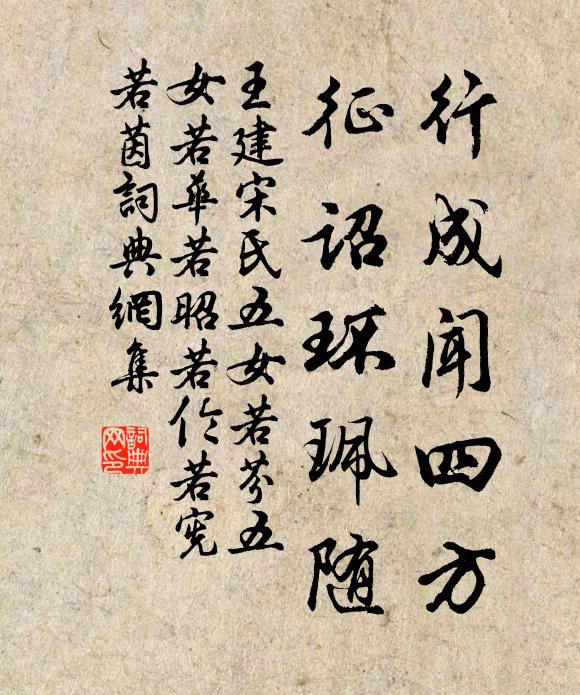 行成闻四方
征诏环珮随
王建宋氏五女若芬五
女若华若昭若伦若宪
若茵詞典網集
詞典
网印